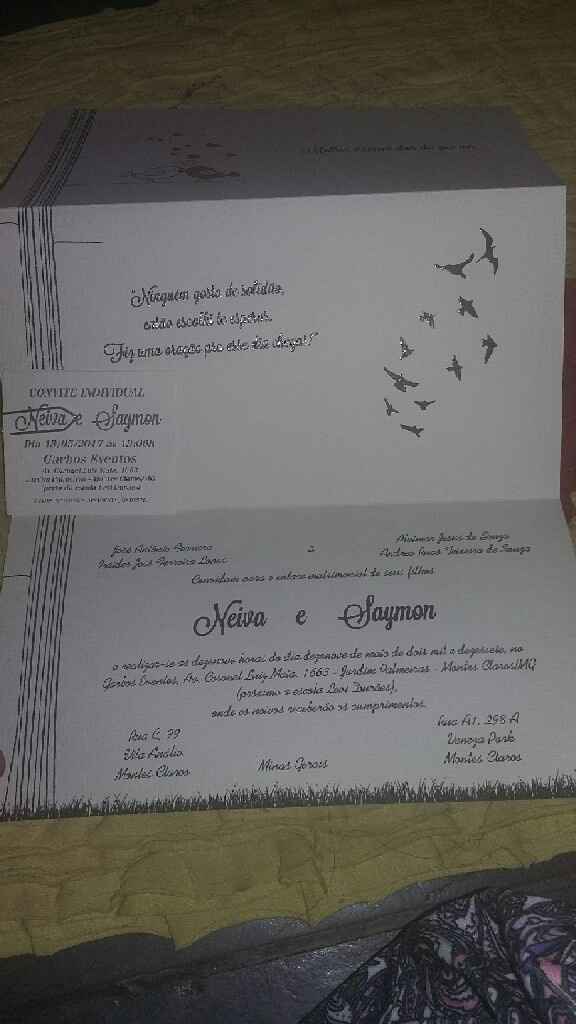 "Ninguém gosta de solidão,
então escolhi te esperar.
Fiz uma oração pra esse dia chegar!!"
CONVITE INDIVIDUAL
Neiva e Saymon
Dia 19/05/2017 às 19:00h
Garbos Eventos
José Antônio Ferreira
e
Andrea Teixeira de Souza
Convidam para o enlace matrimonial de seus filhos
Neiva e Saymon
a realizar-se às dezenove horas do dia dezenove de maio de dois mil e dezessete, no
Garbos Eventos, Av. Coronel Luiz Maia, 1663 - Jardim Palmeiras - Montes Claros/MG
(próximo a escola Levi Durães),
onde os noivos receberão os cumprimentos.
Rua C, 79
Vila Anália
Montes Claros
Minas Gerais
Rua A1, 298 A
Veneza Park
Montes Claros